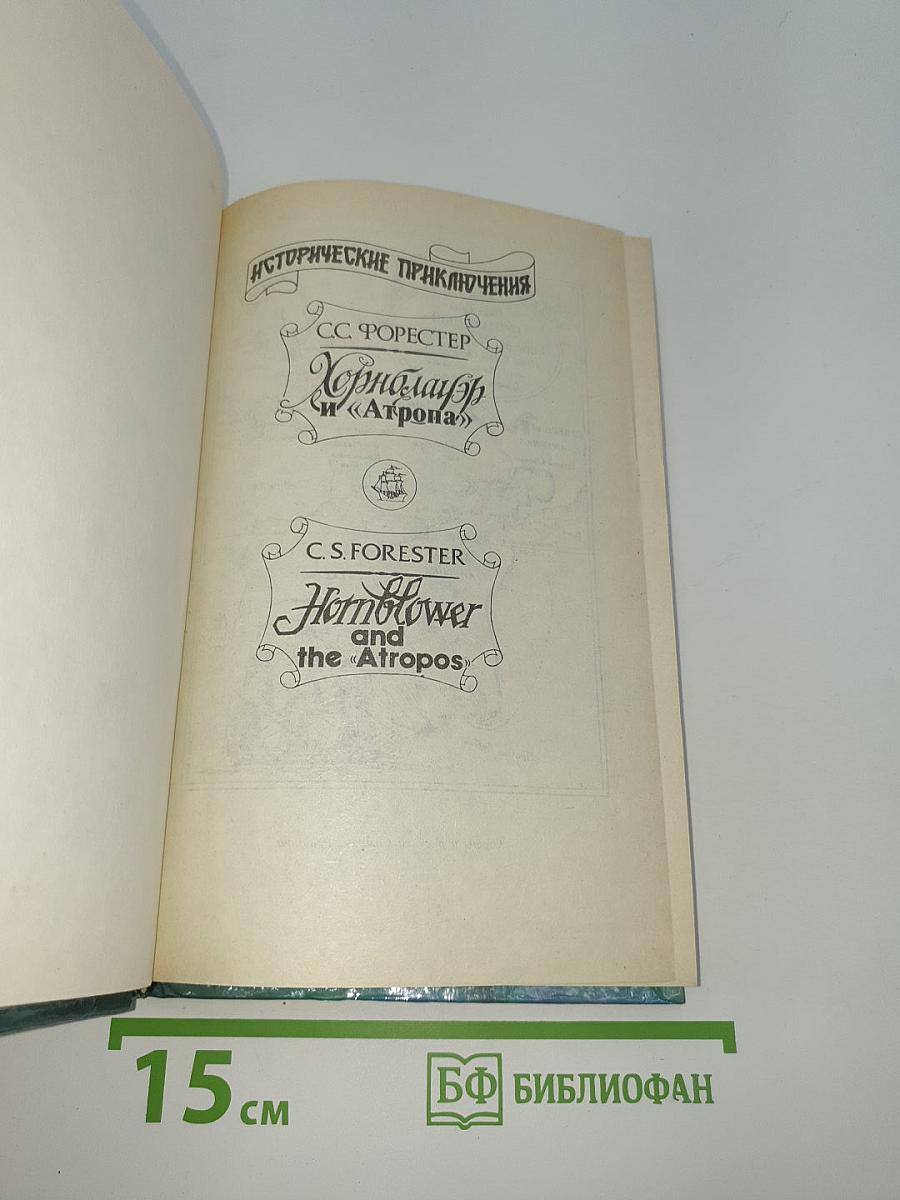 ИСТОРИЧЕСКИЕ ПРИКЛЮЧЕНИЯ
С.С. ФОРЕСТЕР
Хорнблауэр
и «Атропа»
C. S. FORESTER
Hornblower
and
the «Atropos»
15 см
БФ БИБЛИОФАН